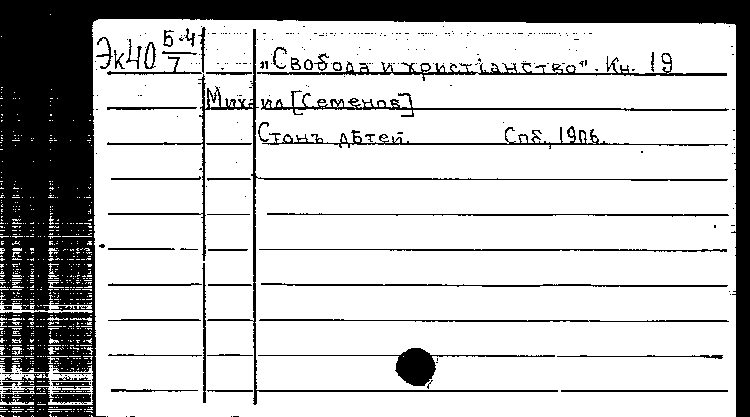 Эк40 5-4/7 „Свобода и христіанство". Кн. 19
Михаил [Семенов]
Стонъ дѣтей. Спб., 1906.